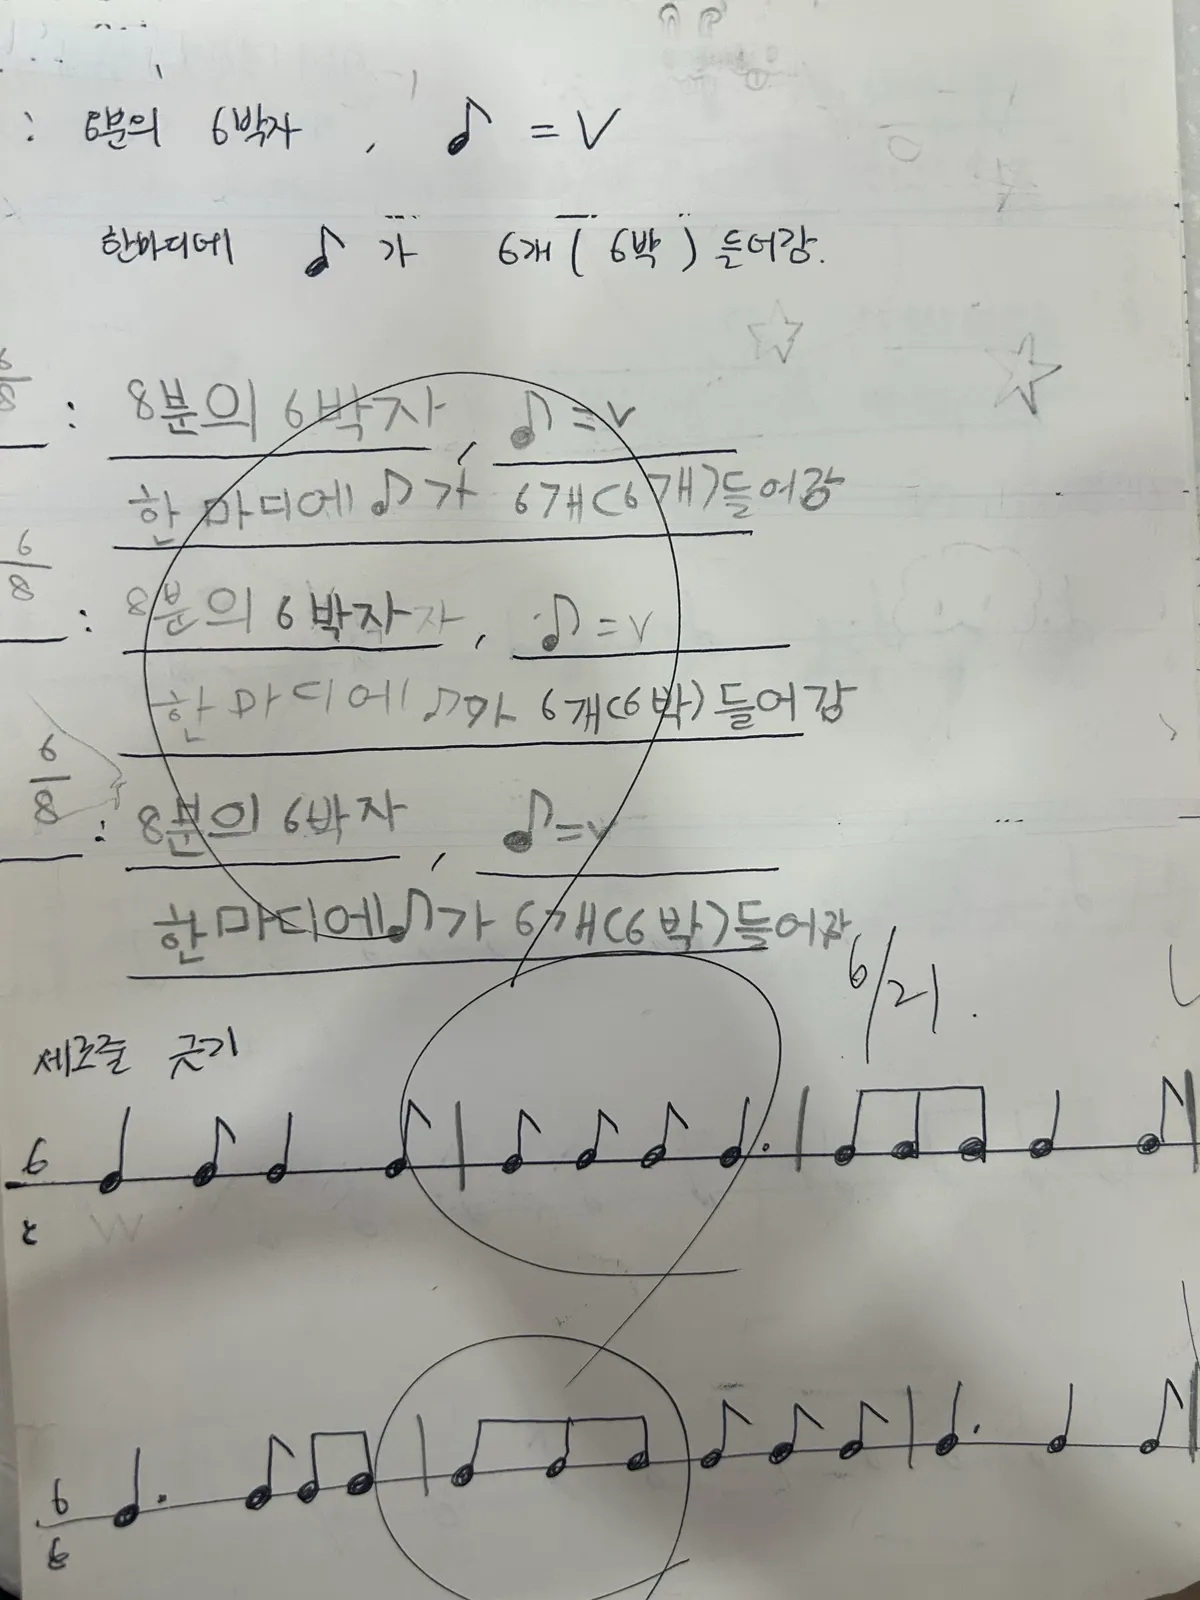 : 8분의 6박자 , ♪ = V
한마디에 ♪ 가 6개 ( 6박 ) 들어감.
6/8 : 8분의 6박자 , ♪=v
한 마디에 ♪가 6개(6개)들어감
6/8 : 8분의 6박자 , ♪=v
한 마디에 ♪가 6개(6박)들어감
6/8 : 8분의 6박자 , ♪=v
한 마디에 ♪가 6개(6박)들어감
6/21.
세로줄 긋기
6
6
8